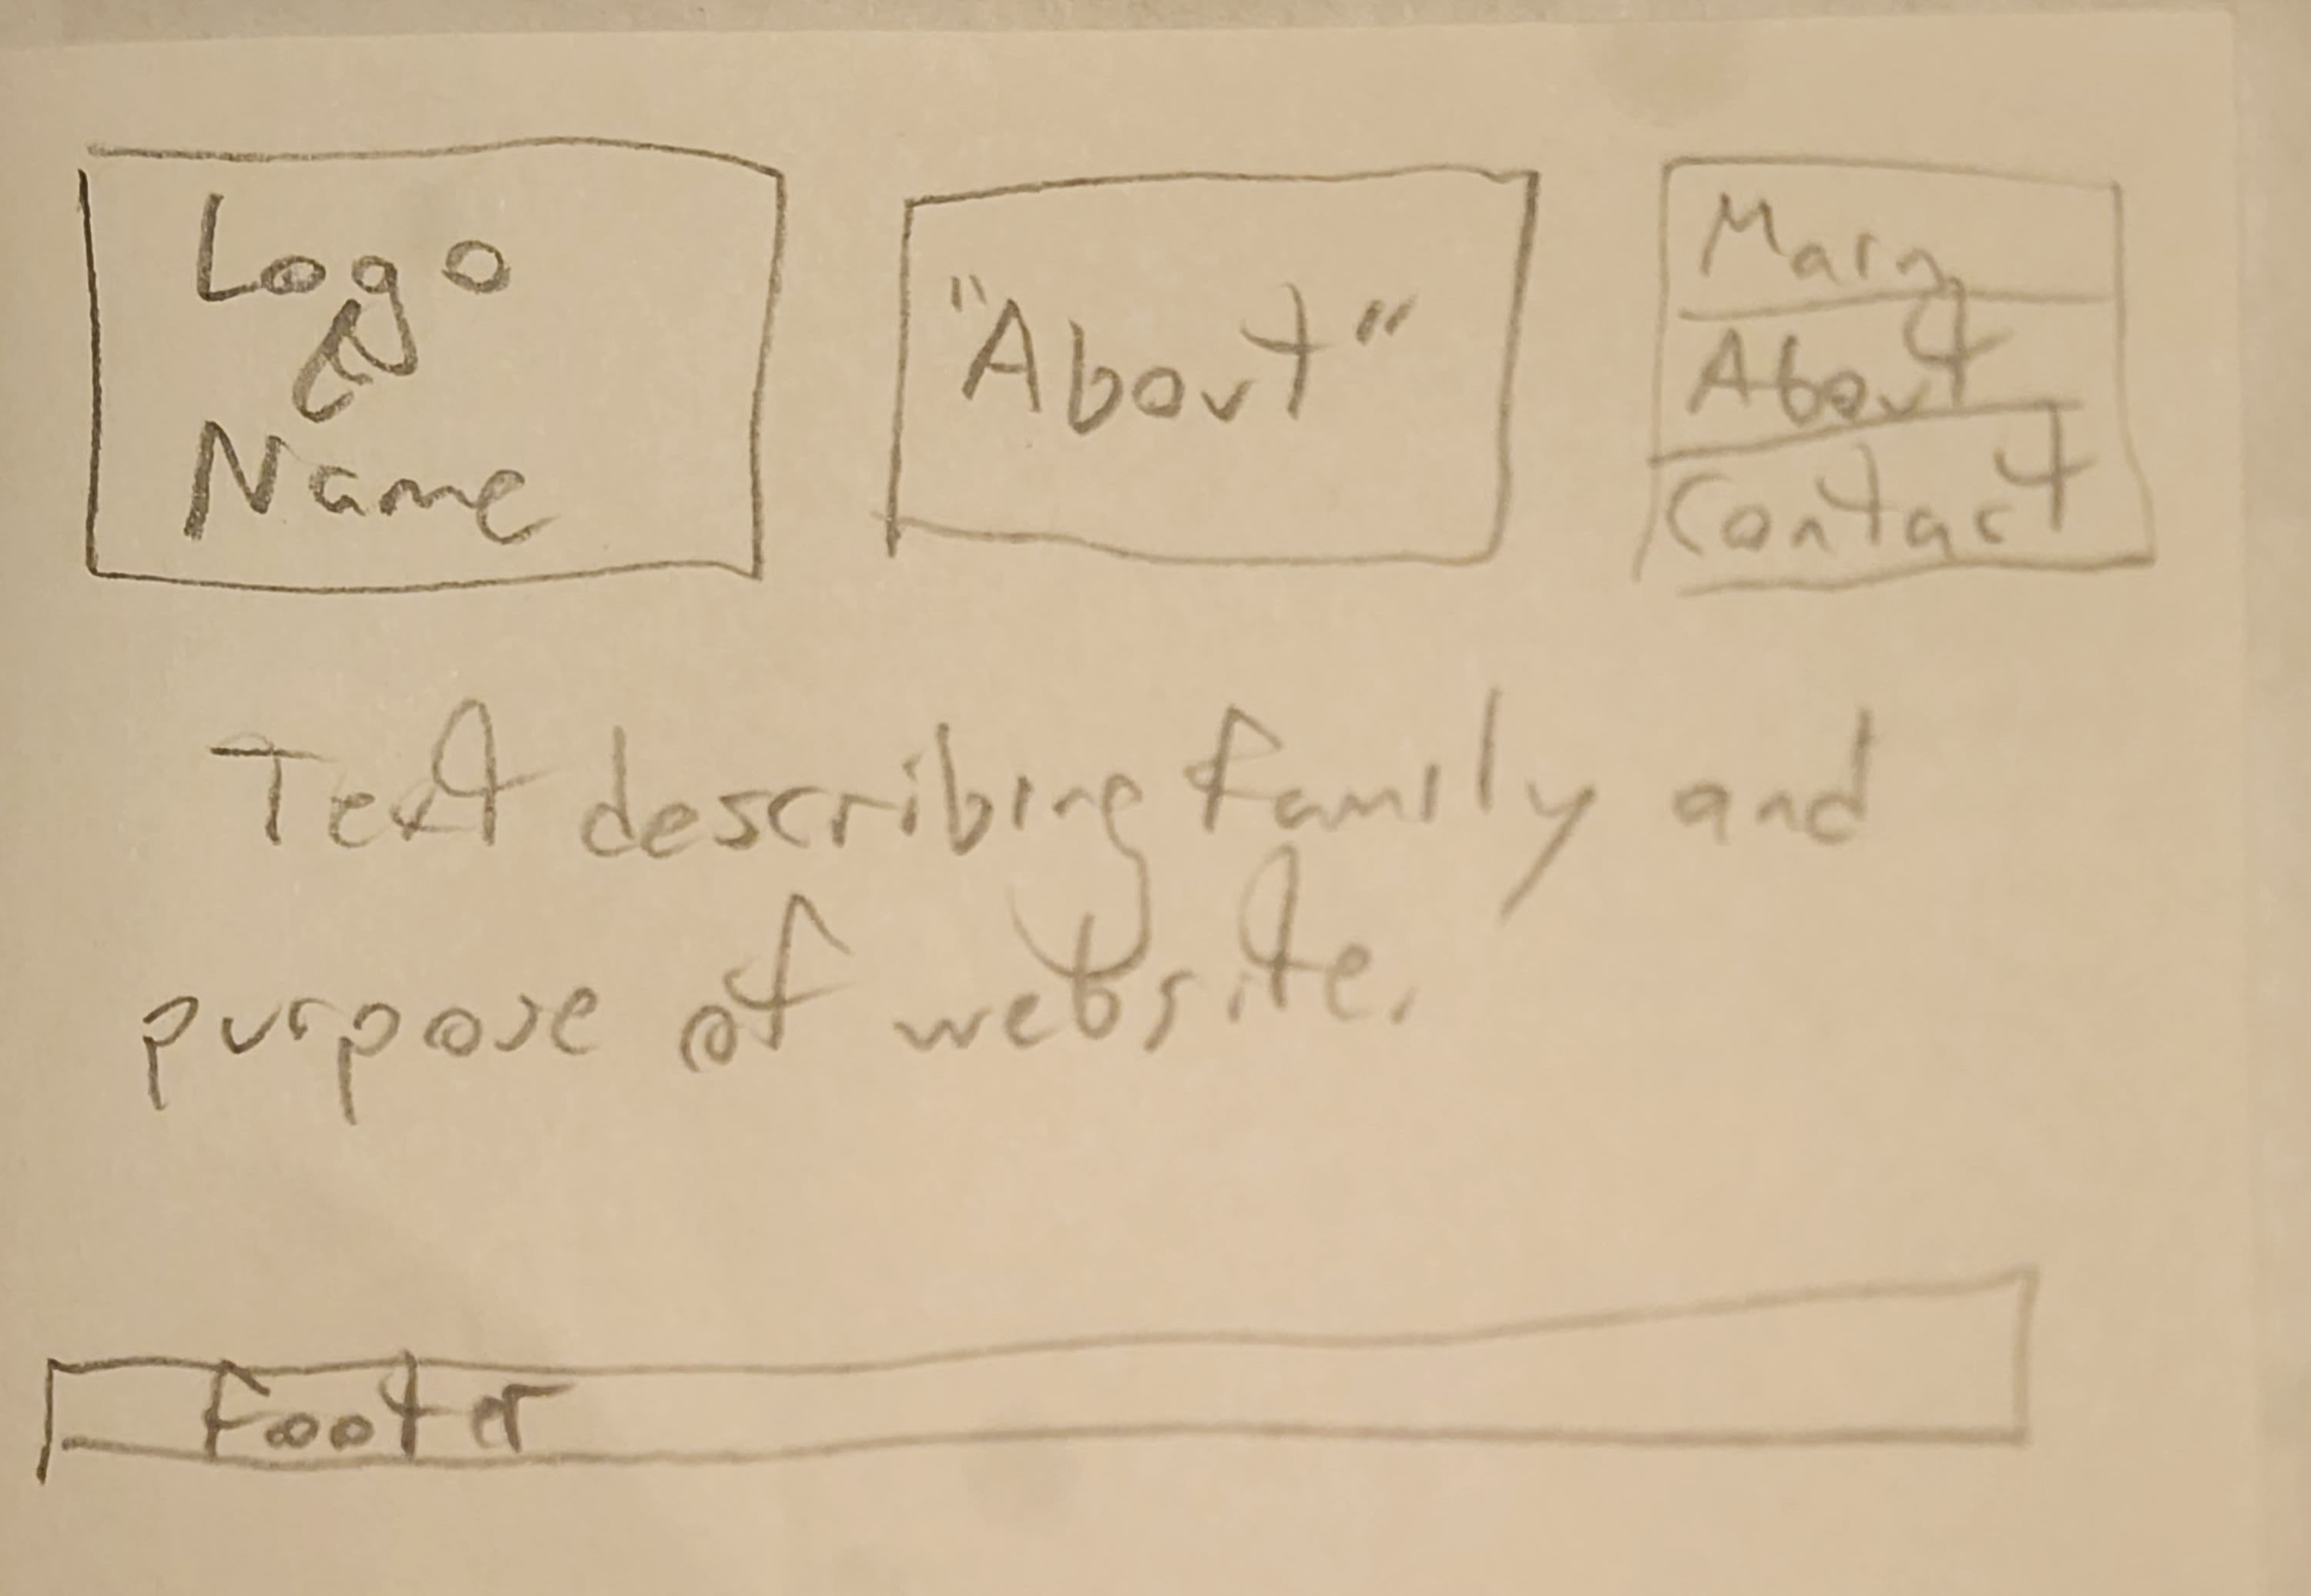 Logo
&
Name
"About"
Main
About
Contact
Text describing family and
purpose of website.
Footer